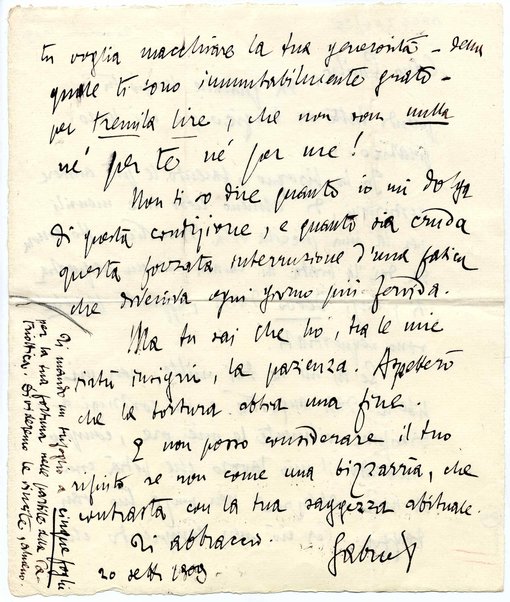 tu voglia macchiare la tua generosità – della
quale ti sono immutabilmente grato –
per tremila lire, che non son nulla
né per te né per me!
Non ti so dire quanto io mi dolga
di questa condizione, e quanto sia cruda
questa forzata interruzione d'una fatica
che diveniva ogni giorno più fervida.
Ma tu sai che ho, tra le mie
virtù insigni, la pazienza. Aspetterò
che la tortura abbia una fine.
E non posso considerare il tuo
rifiuto se non come una bizzarria, che
contrasta con la tua saggezza abituale.
Ti abbraccio.
Gabriel
20 sett. 1909
Ti mando un trifoglio a cinque foglie
per la tua fortuna nelle partite della
Divideremo le vincite, almeno.